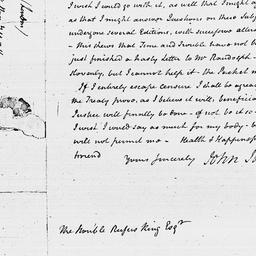 I wish I could go with it, as well that I might
as that I might answer Questions on these Subj
undergone several Editions, with successive altera
- This shews that Time and Trouble have not b
just finished a hasty Letter to Mr Randolph -
slovenly, but I cannot help it - the Packet m
If I entirely escape censure I shall be agreea
the Treaty prove, as I believe it will, beneficia
Justice will finally be done - if not be it so -
I wish I could say as much for my body - b
will not permit me - Health & Happiness
friend
Yours Sincerely John
The Honble Rufus King Esqr